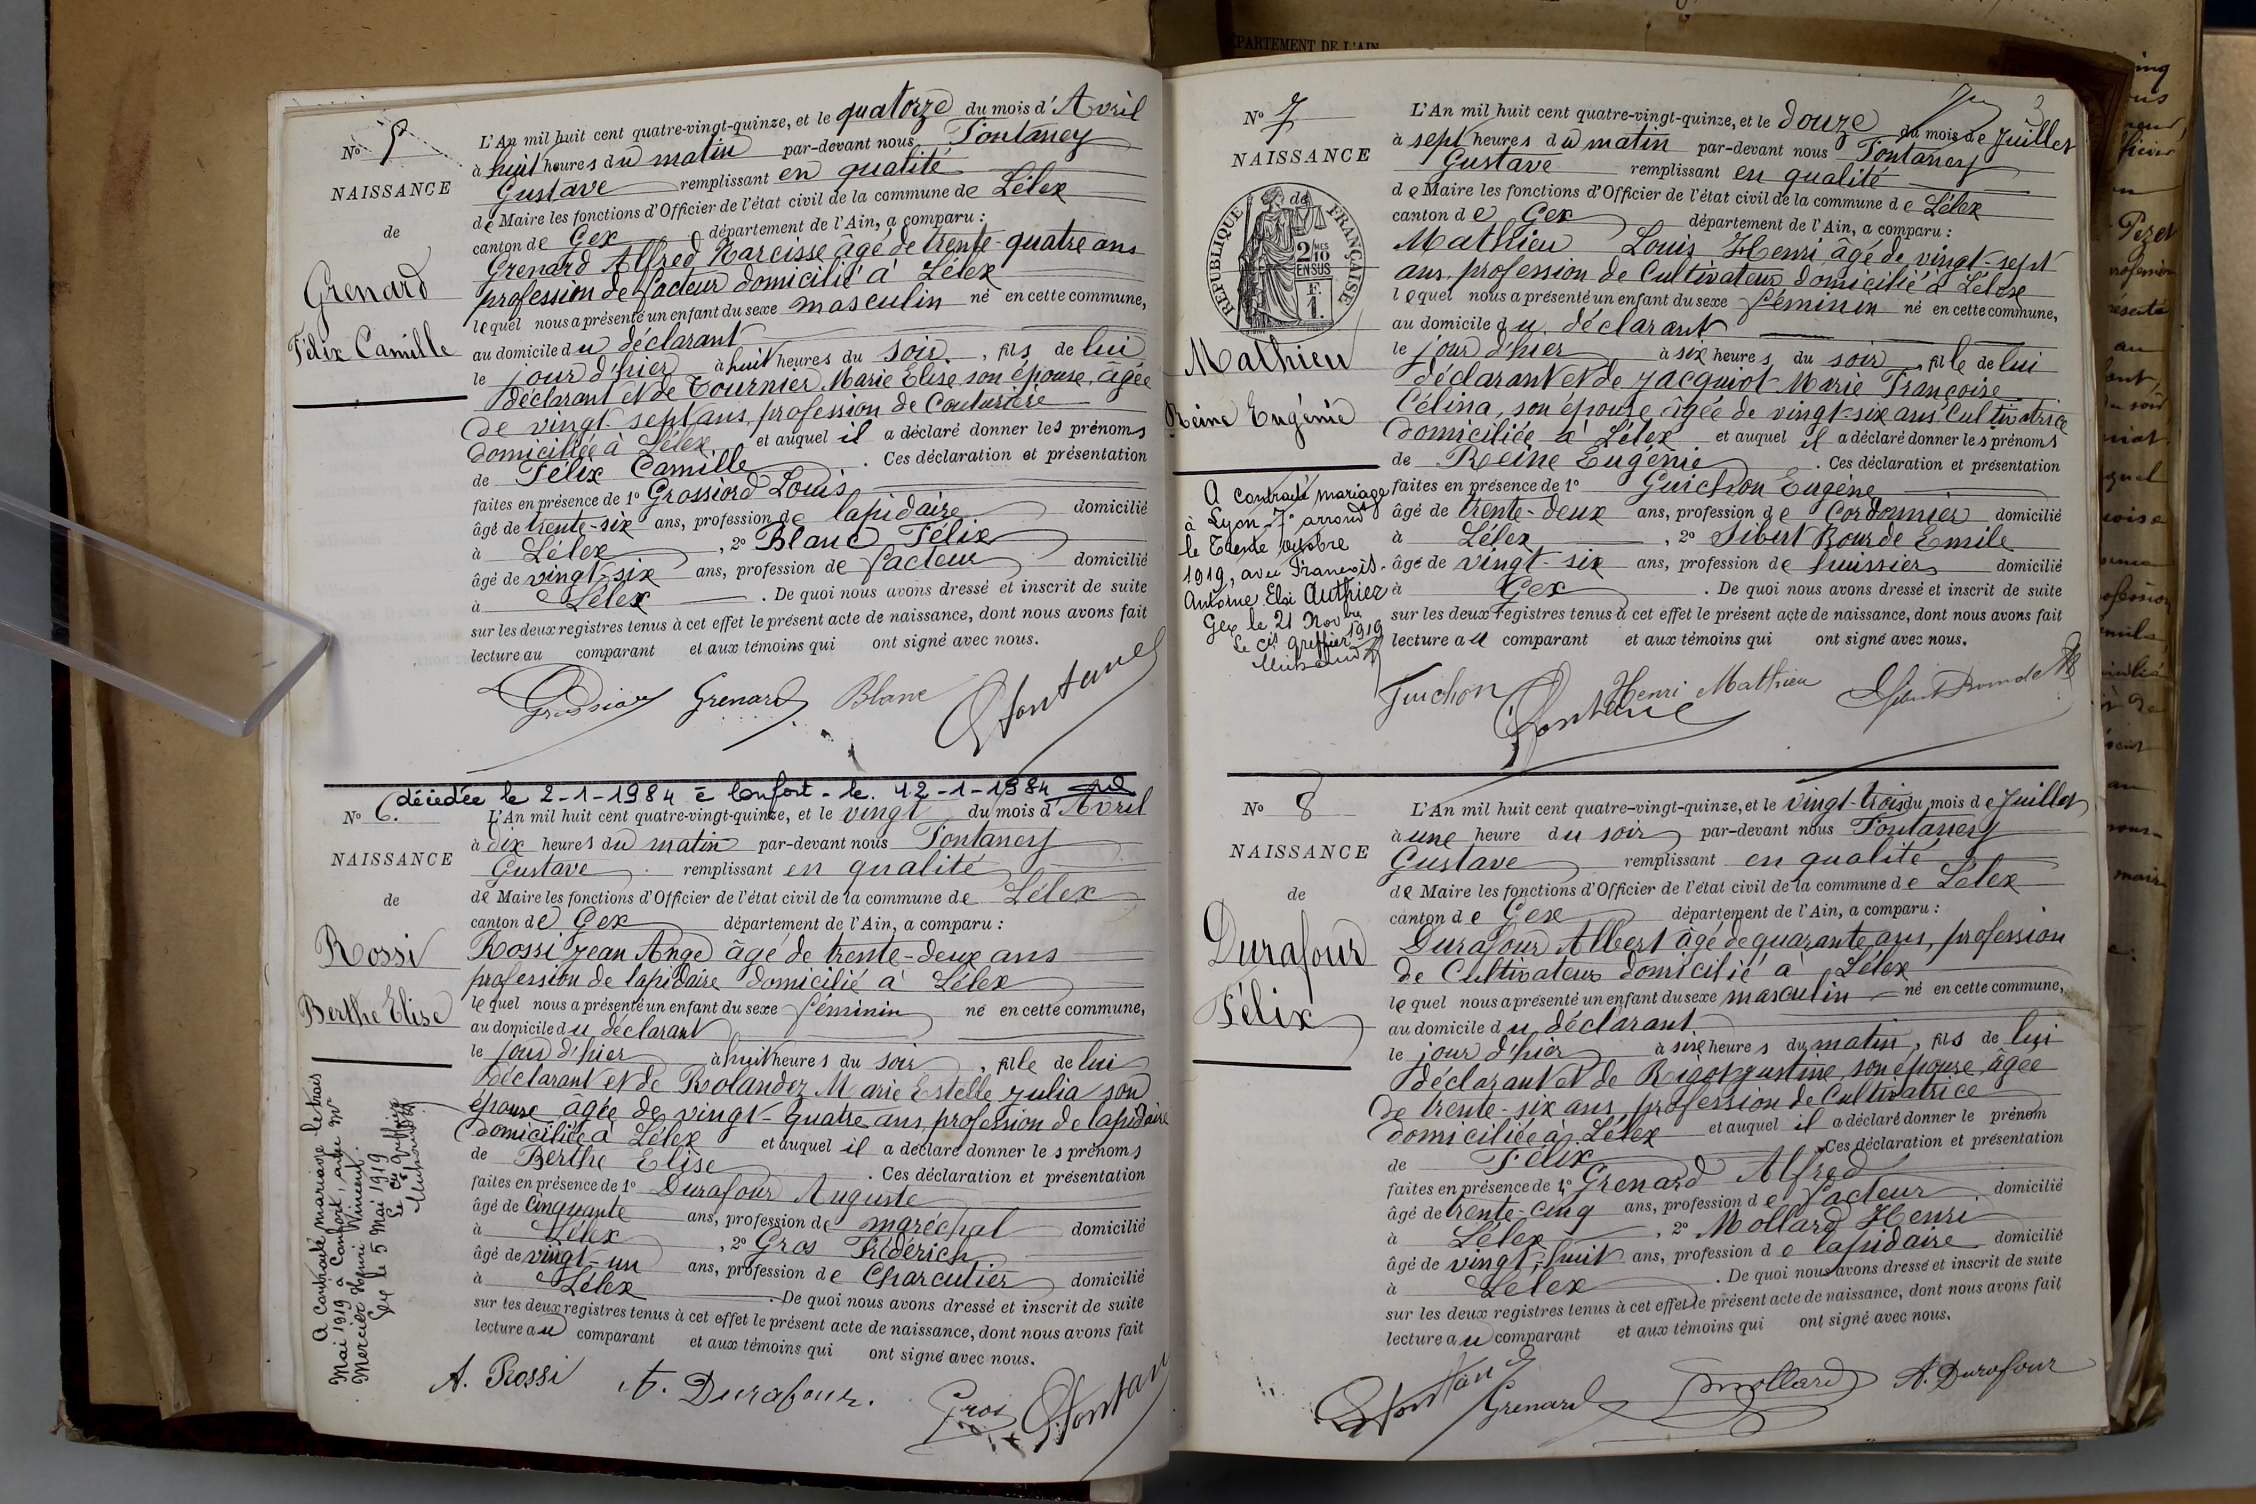 PARTEMENT DE L'AIN
N° 5
NAISSANCE
de
Grenard
Félix Camille
L'An mil huit cent quatre-vingt-quinze, et le quatorze du mois d'Avril
à huit heures du matin par-devant nous Fontaney
Gustave remplissant en qualité
de Maire les fonctions d'Officier de l'état civil de la commune de Lélex
canton de Gex département de l'Ain, a comparu :
Grenard Alfred Narcisse âgé de trente-quatre ans
profession de facteur domicilié à Lélex
lequel nous a présenté un enfant du sexe masculin né en cette commune,
au domicile du déclarant
le jour d'hier à huit heures du soir, fils de lui
déclarant et de Tournier Marie Elise, son épouse, âgée
de vingt-sept ans, profession de Couturière
domiciliée à Lélex et auquel il a déclaré donner les prénoms
de Félix Camille. Ces déclaration et présentation
faites en présence de 1° Grossiord Louis
âgé de trente-six ans, profession de lapidaire domicilié
à Lélex, 2° Blanc Félix
âgé de vingt-six ans, profession de facteur domicilié
à Lélex. De quoi nous avons dressé et inscrit de suite
sur les deux registres tenus à cet effet le présent acte de naissance, dont nous avons fait
lecture au comparant et aux témoins qui ont signé avec nous.
Grossiord Grenard Blanc G Fontaney
décédée le 2-1-1984 à Confort - le 12-1-1984
N° 6.
NAISSANCE
de
Rossi
Berthe Elise
A contracté mariage le trois
Mai 1919 à Confort, avec Mr
Mercier Henri Vincent.
Gex le 5 Mai 1919
Le cis greffier
L'An mil huit cent quatre-vingt-quinze, et le vingt du mois d'Avril
à dix heures du matin par-devant nous Fontaney
Gustave remplissant en qualité
de Maire les fonctions d'Officier de l'état civil de la commune de Lélex
canton de Gex département de l'Ain, a comparu :
Rossi Jean Ange âgé de trente-deux ans
profession de lapidaire domicilié à Lélex
lequel nous a présenté un enfant du sexe féminin né en cette commune,
au domicile du déclarant
le jour d'hier à huit heures du soir, fille de lui
déclarant et de Rolandez Marie Estelle Julia son
épouse âgée de vingt-quatre ans, profession de lapidaire
domiciliée à Lélex et auquel il a déclaré donner les prénoms
de Berthe Elise. Ces déclaration et présentation
faites en présence de 1° Durafour Auguste
âgé de Cinquante ans, profession de maréchal domicilié
à Lélex, 2° Gros Frédérich
âgé de vingt-un ans, profession de Charcutier domicilié
à Lélex. De quoi nous avons dressé et inscrit de suite
sur les deux registres tenus à cet effet le présent acte de naissance, dont nous avons fait
lecture au comparant et aux témoins qui ont signé avec nous.
A. Rossi A. Durafour. Gros G. Fontan
3
N° 7
NAISSANCE
REPUBLIQUE FRANÇAISE
de
2 MES
10
EN SUS
F.
1.
Mathieu
Reine Eugénie
A contracté mariage
à Lyon 7e arrond
le Trente octobre
1919, avec François-
Antoine Eloi Authier
Gex le 21 Novbre
1919
Le cis greffier
L'An mil huit cent quatre-vingt-quinze, et le douze du mois de Juillet
à sept heures du matin par-devant nous Fontaney
Gustave remplissant en qualité
de Maire les fonctions d'Officier de l'état civil de la commune de Lélex
canton de Gex département de l'Ain, a comparu :
Mathieu Louis Henri âgé de vingt-sept
ans, profession de Cultivateur domicilié à Lélex
lequel nous a présenté un enfant du sexe féminin né en cette commune,
au domicile du déclarant
le jour d'hier à six heures du soir, fille de lui
déclarant et de Jacquiot Marie Françoise
Célina, son épouse âgée de vingt-six ans Cultivatrice
domiciliée à Lélex et auquel il a déclaré donner les prénoms
de Reine Eugénie. Ces déclaration et présentation
faites en présence de 1° Guichon Eugène
âgé de trente-deux ans, profession de Cordonnier domicilié
à Lélex, 2° Sibert Bourde Emile
âgé de vingt-six ans, profession de huissier domicilié
à Gex. De quoi nous avons dressé et inscrit de suite
sur les deux registres tenus à cet effet le présent acte de naissance, dont nous avons fait
lecture au comparant et aux témoins qui ont signé avec nous.
Guichon G Fontaney Henri Mathieu
N° 8
NAISSANCE
de
Durafour
Félix
L'An mil huit cent quatre-vingt-quinze, et le vingt-trois du mois de Juillet
à une heure du soir par-devant nous Fontaney
Gustave remplissant en qualité
de Maire les fonctions d'Officier de l'état civil de la commune de Lélex
canton de Gex département de l'Ain, a comparu :
Durafour Albert âgé de quarante ans, profession
de Cultivateur domicilié à Lélex
lequel nous a présenté un enfant du sexe masculin né en cette commune,
au domicile du déclarant
le jour d'hier à six heures du matin, fils de lui
déclarant et de son épouse âgée
de trente-six ans, profession de Cultivatrice
domiciliée à Lélex et auquel il a déclaré donner le prénom
de Félix. Ces déclaration et présentation
faites en présence de 1° Grenard Alfred
âgé de trente-cinq ans, profession de facteur, domicilié
à Lélex, 2° Mollard Henri
âgé de vingt-huit ans, profession de lapidaire domicilié
à Lélex. De quoi nous avons dressé et inscrit de suite
sur les deux registres tenus à cet effet le présent acte de naissance, dont nous avons fait
lecture au comparant et aux témoins qui ont signé avec nous.
G Fontaney Grenard Mollard A. Durafour